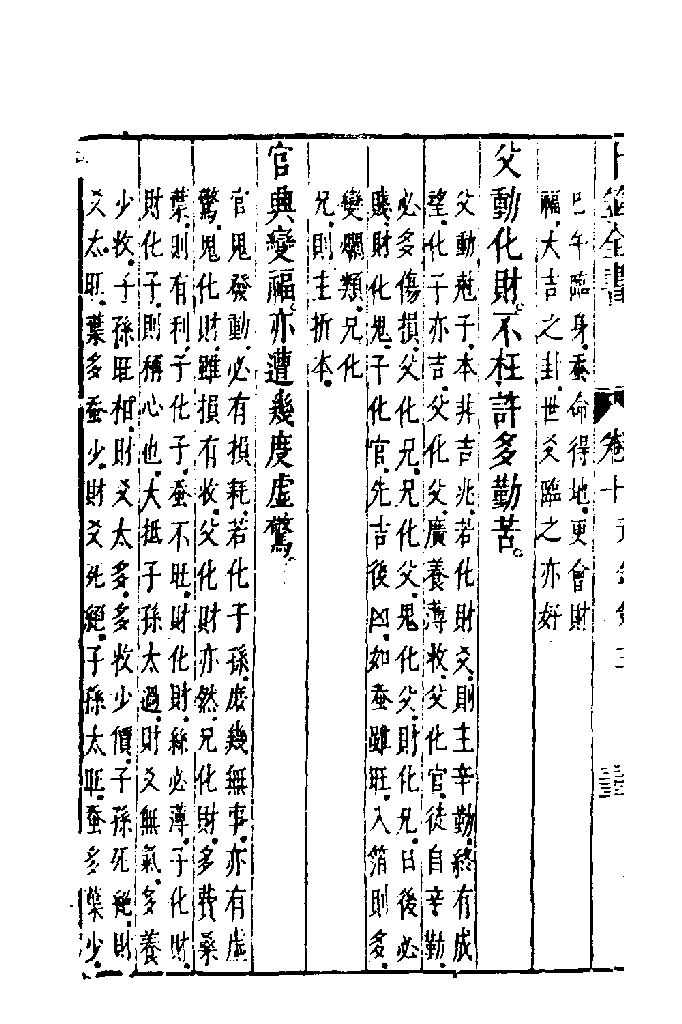 卜筮全書 卷十
巳午臨身蚕命得地更會財
福大吉之卦世爻臨之亦好
父動化財不枉許多勤苦
父動尅子本非吉兆若化財爻則主辛勤終有成
望化子亦吉父化父廣養薄收父化官徒自辛勤
必多傷損父化兄兄化父鬼化父財化兄日後必
賤財化鬼子化官先吉後凶如蚕雖旺入箔則多
變爛類兄化
兄則主折本
官興變福亦遭幾度虛驚
官鬼發動必有損耗若化子孫庶幾無事亦有虛
驚鬼化財雖損有收父化財亦然兄化財多費桑
葉則有利子化子蚕不旺財化財絲必薄子化財
財化子則稱心也大抵子孫太過財爻無氣多養
少收子孫旺相財爻太多多收少價子孫死絕財
爻太旺葉多蚕少財爻死絕子孫太旺蚕多葉少